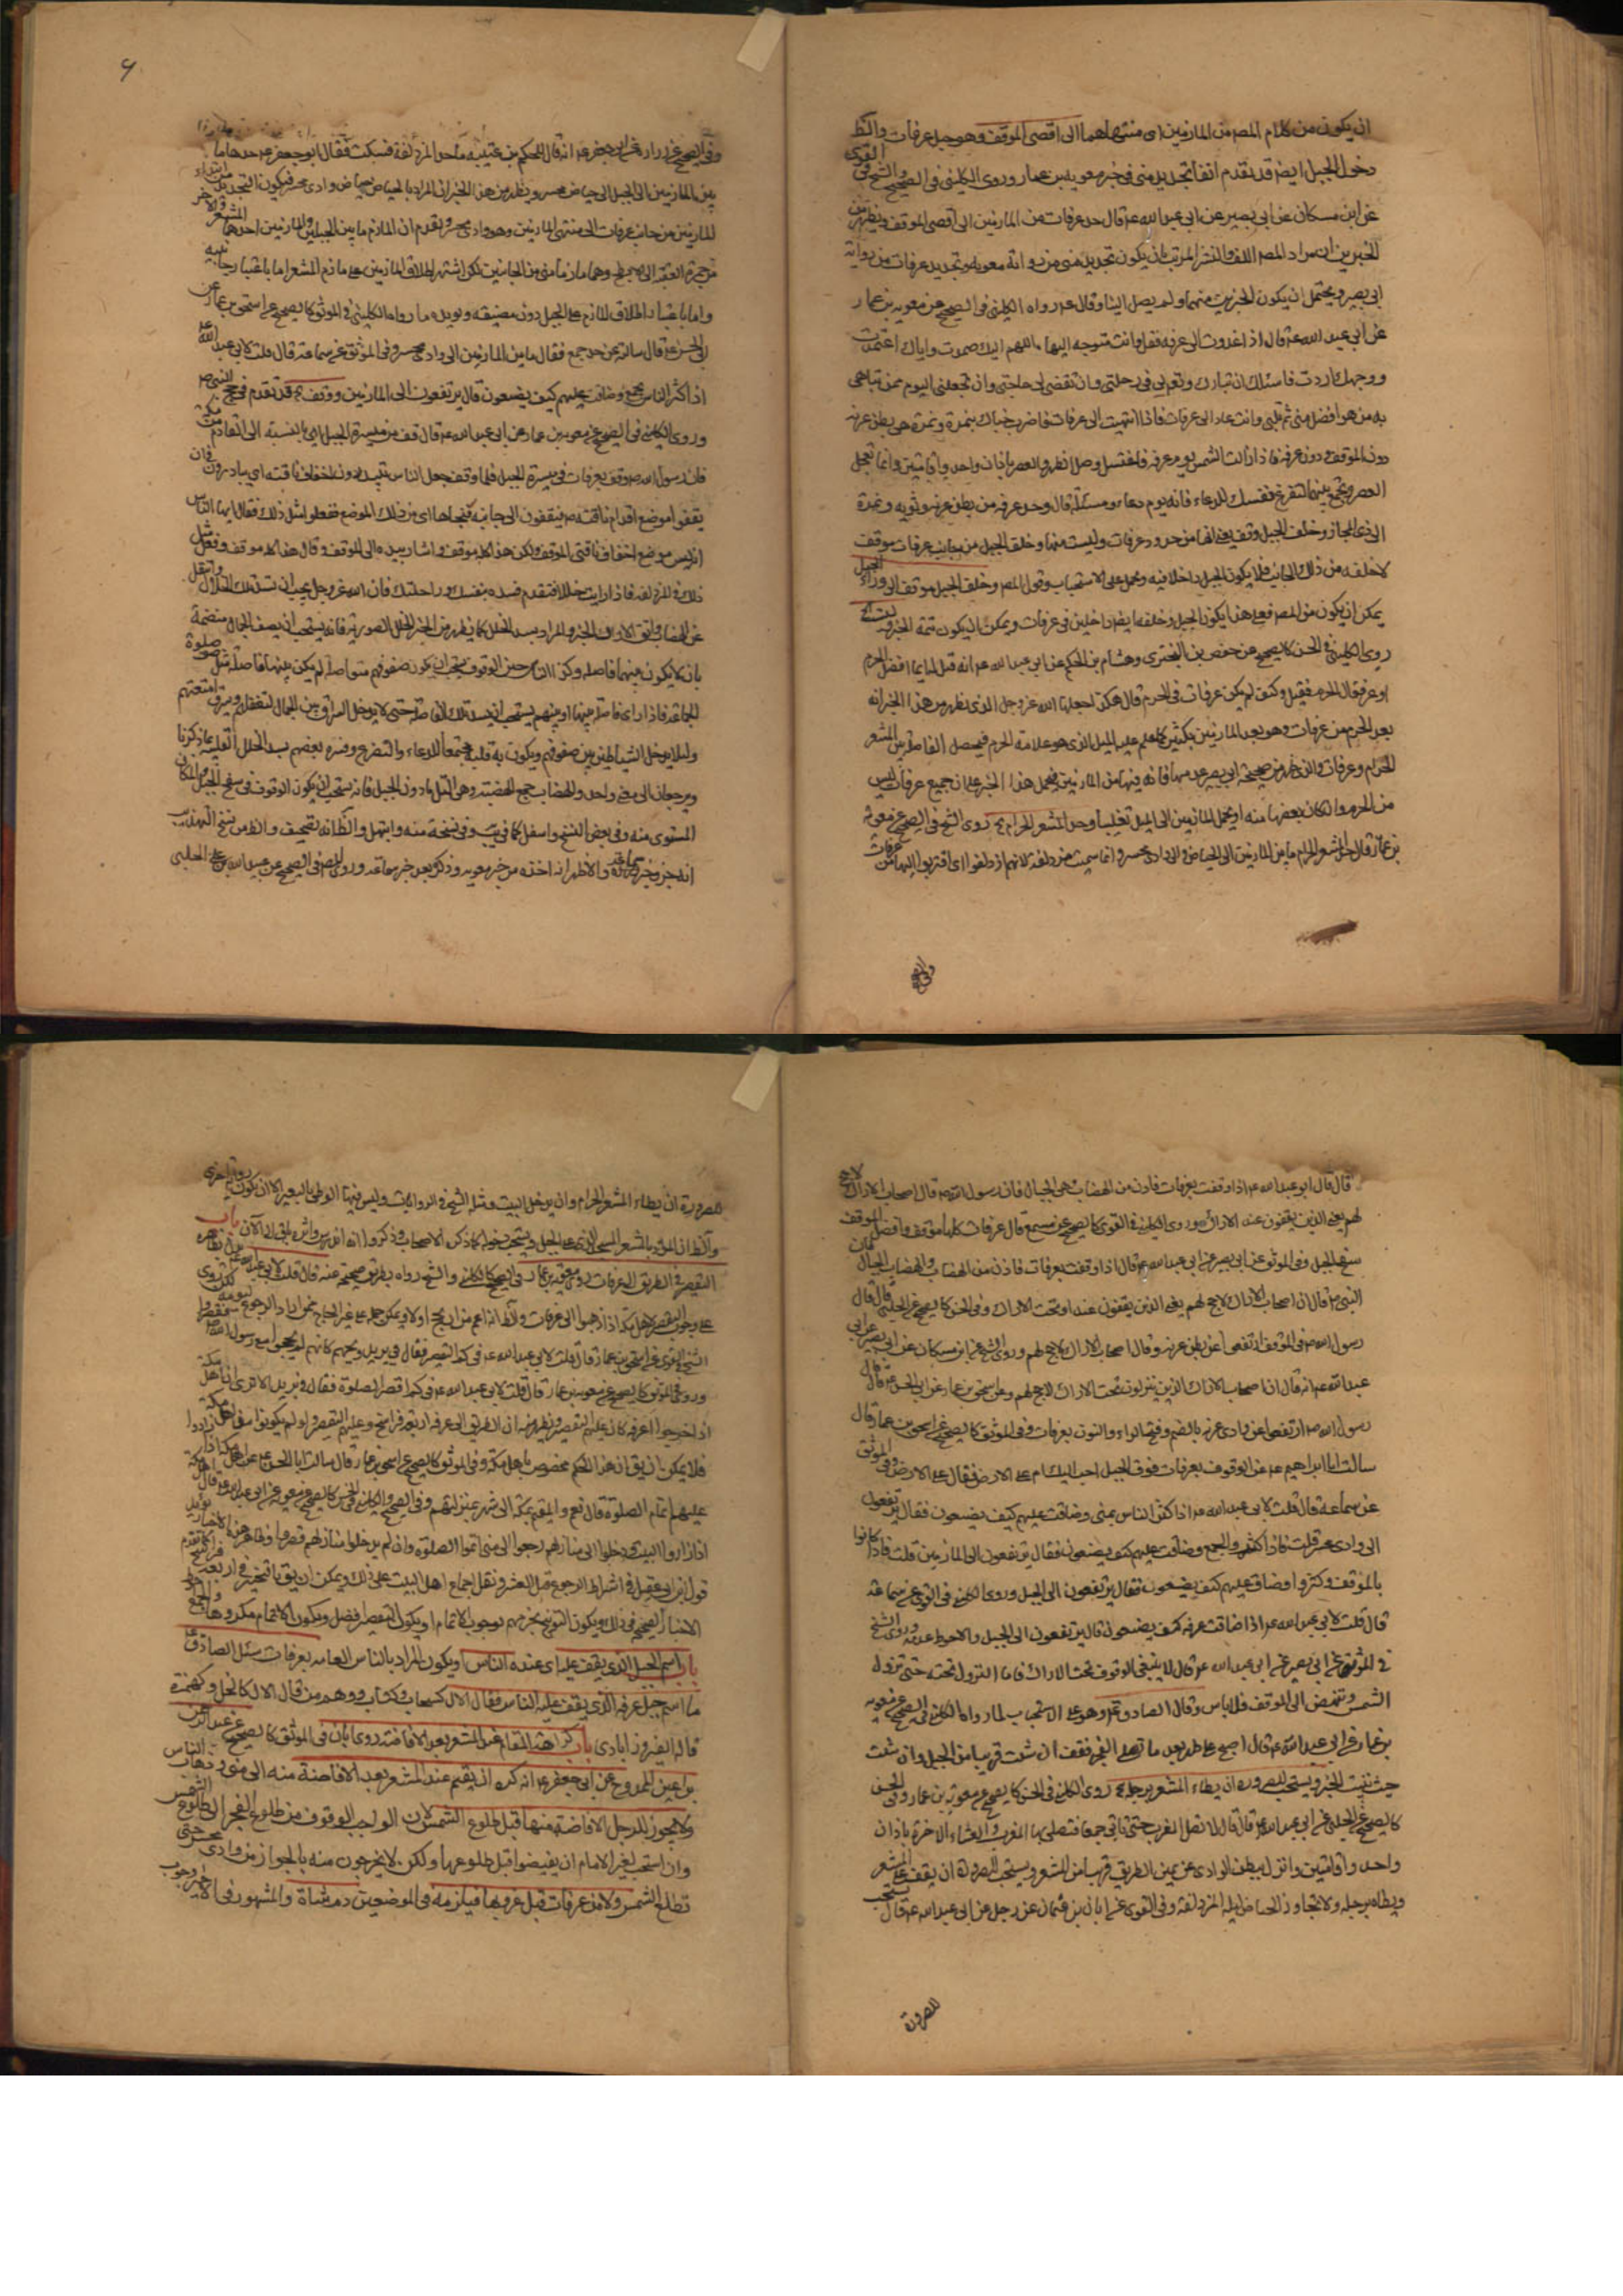 ان يكون من كلام المص من المازمين اى منتهاهما الى اقصى الموقف وهو جبل عرفات والظ
دخول الجبل ايضا قد تقدم انفا تحديد منى فى خبر معوية بن عمار وروى الكلينى فى الصحيح والشيخ فى القوى
عن ابن مسكان عن ابى بصير عن ابى عبد الله ع قال حد عرفات من المازمين الى اقصى الموقف ويظهر من
الخبرين ان مراد المص اللف والنشر المرتب بان يكون تحديد منى من رواية معوية وتحديد عرفات من رواية
ابى بصير ويحتمل ان يكون الخبرين منهما ولم يصل الينا وقال ع رواه الكلينى فى الصحيح عن معوية بن عمار
عن ابى عبد الله ع قال اذا غدوت الى عرفة فقل وانت متوجه اليها اللهم اليك صمدت واياك اعتمدت
ووجهك اردت فاسئلك ان تبارك لى فى رحلتى وان تقضى لى حاجتى وان تجعلنى اليوم ممن تباهى
به من هو افضل منى ثم تلبى وانت غاد الى عرفات فاذا انتهيت الى عرفات فاضرب خباك بنمرة ونمرة هى بطن عرنه
دون الموقف ودون عرفة فاذا زالت الشمس يوم عرفة فاغتسل وصل الظهر والعصر باذان واحد واقامتين وانما تعجل
العصر وتجمع بينهما لتفرغ نفسك للدعاء فانه يوم دعاء ومسئلة قال وحد عرفة من بطن عرنه وثوية ونمرة
الى ذى المجاز وخلف الجبل وقف وليست منها وخلف الجبل من جانب عرفات موقف
لا خلفه من ذلك الجانب فلا يكون الجبل داخلا فيه ويحمل على الاستحباب وقول المص وخلف الجبل موقف الى وراء الجبل
يمكن ان يكون من المص فعلى هذا يكون الجبل وخلفه ايضا داخلين فى عرفات ويمكن ان يكون تتمة الخبر
روى الكلينى فى الحسن كالصحيح عن حفص بن البخترى وهشام بن الحكم عن ابى عبد الله ع انه قيل له ايما افضل الحرم
او عرفة فقال الحرم فقيل وكيف لم يكن عرفات فى الحرم قال هكذا جعلها الله عز وجل الذى يظهر من هذا الخبر انه
بعد الحرم من عرفات وهو بعد المازمين بكثير كما علم عليه الميل الذى هو علامة الحرم فيحصل الفاصل بين المشعر
الحرام وعرفات والذى ظهر من صحيحة ابى بصير منها فانه فيها من المازمين فيحمل هذا الخبر على ان جميع عرفات ليس
من الحرم وان كان بعضها منه او يحمل المازمين الى الميل تغليبا وحد المشعر الحرام روى الشيخ فى الصحيح عن معوية
بن عمار قال حد المشعر الحرام ما بين المازمين الى الحياض والى وادى محسر وانما سميت مزدلفة لانهم ازدلفوا اى اقتربوا اليها من عرفات
وفى الصحيح
وفى الصحيح عن زرارة عن ابى جعفر ع انه قال للحكم بن عتيبه ما حد المزدلفة فسكت فقال ابو جعفر ع حدها ما
بين المازمين الى الجبل الى حياض محسر ويظهر من هذا الخبر ان المراد بالحياض حياض وادى محسر فيكون التحديد من ابتداء
المازمين من جانب عرفات الى منتهى المازمين وهو وادى محسر وتقدم ان المازم ما بين الجبلين والمازمين احدهما المشعر والاخر
من جمرة العقبة الى الابطح وهما مازما منى من الجانبين لكن اشتهر اطلاق المازمين على مازم المشعر اما باعتبار جانبيه
واما باعتبار اطلاق المازم على الجبل دون مضيقه ويؤيده ما رواه الكلينى فى الموثق كالصحيح عن اسحق بن عمار عن
ابى الحسن ع قال سالته عن حد جمع فقال ما بين المازمين الى وادى محسر وفى الموثق عن سماعة قال قلت لابى عبد الله ع
اذا كثر الناس بجمع وضاقت عليهم كيف يصنعون قال يرتفعون الى المازمين ووقف قد تقدم فى حج النبى ص
وروى الكلينى فى الصحيح عن معوية بن عمار عن ابى عبد الله ع قال قف فى ميسرة الجبل اى بالنسبة الى القادم من مكة
فان رسول الله ص وقف بعرفات فى ميسرة الجبل فلما وقف جعل الناس يبتدرون اخفاف ناقته اى يبادرون فان
يقفوا موضع اقدام ناقته ص فيقفون الى جانبه فنحاها اى من ذلك الموضع ففعلوا مثل ذلك فقال ايها الناس
انه ليس موضع اخفاف ناقتى الموقف ولكن هذا كله موقف واشار بيده الى الموقف وقال هذا كله موقف وفعل مثل
ذلك فى المزدلفة فاذا رايت خللا فتقدم فسده بنفسك وراحلتك فان الله عز وجل يحب ان تسد تلك الخلال وانتقل
عن الهضاب واتق الاراك والمراد بسد الخلل كما يظهر من الخبر الخلل الصورية فانه يستحب ان يصف الجبال منضمة
بان لا يكون بينهما فاصلة وكذا الناس حين الوقوف يستحب ان يكون صفوفهم متواصلة لم يكن بينهما فاصلة مثل صفوف صلوة
الجماعة فاذا راى فاصلة بينهما او بينهم يستحب ان يسد تلك الفاصلة حتى لا يدخل السراق بين الجمال لتغفلهم ويسرق امتعتهم
ولئلا يدخل الشياطين بين صفوفهم ويكون به قلبه مجتمعا للدعاء والتضرع وفسره بعضهم بسد الخلل القلبية بما ذكرنا
ويرجعان الى معنى واحد والهضاب جمع الهضبة وهى التل ما دون الجبل فانه يستحب ان يكون الوقوف فى سفح الجبل والمكان
المستوى منه وفى بعض النسخ واسفل كما فى يب وفى نسخة منه وابتهل والظ انه تصحيف والظ من نسخ التهذيب
انه جزء خبر سماعة والاظهر انه اخذه من خبر معوية وذكر بعد خبر سماعة وروى المص فى الصحيح عن عبيد الله بن على الحلبى
قال قال ابو عبد الله ع اذا وقفت بعرفات فادن من الهضاب هى الجبال فان رسول الله ص قال اصحاب الاراك لا حج
لهم يعنى الذين يقفون عند الاراك وروى الكلينى فى القوى كالصحيح عن مسمع قال عرفات كلها موقف وافضل الموقف
سفح الجبل وفى الموثق عن ابى بصير عن ابى عبد الله ع قال اذا وقفت بعرفات فادن من الهضاب والهضاب الجبال فان
النبى ص قال ان اصحاب الاراك لا حج لهم يعنى الذين يقفون عند او تحت الاراك وفى الحسن كالصحيح عن الحلبى قال قال
رسول الله ص فى الموقف ارتفعوا عن بطن عرنه وقال اصحاب الاراك لا حج لهم وروى الشيخ عن ابن مسكان عن ابى بصير عن ابى
عبد الله ع انه قال ان اصحاب الاراك الذين ينزلون تحت الاراك لا حج لهم وعن اسحق بن عمار عن ابى الحسن ع قال قال
رسول الله ص ارتفعوا عن وادى عرنه بالضم وفتح الراء والنون بعرفات وفى الموثق كالصحيح عن اسحق بن عمار قال
سالت ابا ابراهيم ع عن الوقوف بعرفات فوق الجبل احب اليك ام على الارض فقال على الارض وفى الموثق
عن سماعة قال قلت لابى عبد الله ع اذا كثر الناس بمنى وضاقت عليهم كيف يصنعون فقال يرتفعون
الى وادى محسر قلت فاذا كثروا بجمع وضاقت عليهم كيف يصنعون فقال يرتفعون الى المازمين قلت فاذا كانوا
بالموقف وكثروا وضاق عليهم كيف يصنعون فقال يرتفعون الى الجبل وروى الكلينى فى القوى عن سماعة
قال قلت لابى عبد الله ع اذا ضاقت عرفة كيف يصنعون قال يرتفعون الى الجبل والاحوط عدمه وروى الشيخ
فى الموثق عن ابى بصير عن ابى عبد الله ع قال لا ينبغى الوقوف تحت الاراك فاما النزول تحته حتى تزول
الشمس وتنهض الى الموقف فلا باس وقال الصادق ع وهو على الاستحباب لما رواه الكلينى فى الصحيح عن معوية
بن عمار عن ابى عبد الله ع قال اصبح على طهر بعد ما تصلى الفجر فقف ان شئت قريبا من الجبل وان شئت
حيث تبيت الخبر ويستحب للصرورة ان يطاء المشعر برجله روى الكلينى فى الحسن كالصحيح عن معوية بن عمار وفى الحسن
كالصحيح عن الحلبى عن ابى عبد الله ع قال قال لا تصل المغرب حتى تاتى جمعا فتصلى بها المغرب والعشاء الاخرة باذان
واحد واقامتين وانزل ببطن الوادى عن يمين الطريق قريبا من المشعر ويستحب للصرورة ان يقف على المشعر
ويطاه برجله ولا تجاوز الحياض ليلة المزدلفة وفى القوى عن ابان بن عثمان عن رجل عن ابى عبد الله ع قال يستحب
للصرورة
للصرورة ان يطاء المشعر الحرام وان يدخل البيت ومثله الشيخ فى الروايات وليس فيها الوطى بالبعير الا ان يكون رواية اخرى
والظ ان المراد بالمشعر المسجد الذى على الجبل ويستحب دخوله كما ذكره الاصحاب وذكروا انه اندرس واثره باق الى الان باب
التقصير فى الطريق الى عرفات روى معوية بن عمار فى الصحيح كالكلينى والشيخ رواه بطرق صحيحة عنه قال قلت لابى عبد الله ع
على وجوب التقصير لاهل مكة اذا ذهبوا الى عرفات والظ انه اعم من ان يحج او لا ويمكن حمله على غير الحاج ممن اراد الرجوع ليومه
الشيخ فى القوى عن اسحق بن عمار قال قلت لابى عبد الله ع فى كم التقصير فقال فى بريد ويحهم كانهم لم يحجوا مع رسول الله ص فقصروا
وروى فى الموثق كالصحيح عن معوية بن عمار قال قلت لابى عبد الله ع فى كم اقصر الصلوة فقال فى بريد الا ترى ان اهل مكة
اذا خرجوا الى عرفة كان عليهم التقصير ويظهر منه ان الطريق الى عرفة اربعة فراسخ وعليهم التقصير
فلا يمكن ان يق ان هذا الحكم مخصوص باهل مكة وفى الموثق كالصحيح عن اسحق بن عمار قال سالت ابا الحسن ع عن اهل مكة اذا زاروا
عليهم اتمام الصلوة قال نعم والمقيم بمكة الى شهر بمنزلتهم وفى الصحيح والكلينى فى الحسن كالصحيح عن معوية عن ابى عبد الله ع قال اهل مكة
اذا زاروا البيت ودخلوا الى منازلهم ثم رجعوا الى منى اتموا الصلوة وان لم يدخلوا منازلهم قصروا وظاهر هذه الاخبار يؤيد
قول ابن ابى عقيل فى اشتراط الرجوع قبل العشر ونقل اجماع اهل البيت على ذلك ويمكن ان يق بالتخيير فى اربعة فراسخ كما تقدم
الاخبار الصحيحة فى ذلك ويكون التوبيخ لجزمهم بوجوب الاتمام او يكون التقصير افضل ويكون الاتمام مكروها والجمع
باب اسم الجبل الذى يقف عليه اى عنده الناس او يكون المراد بالناس العامه بعرفات سئل الصادق ع
ما اسم جبل عرفة الذى يقف عليه الناس فقال الال كسحاب وككتاب ووهم من قال الال كالخل وكهمزة
قاله الفيروزابادى باب كراهة المقام عند المشعر بعد الافاضة روى ابان فى الموثق كالصحيح عن عبد الرحمن
بن اعين الممدوح عن ابى جعفر ع انه كره ان يقيم عند المشعر بعد الافاضة منه الى منى
ولا يجوز للرجل الافاضة منها قبل طلوع الشمس لان الواجب الوقوف من طلوع الفجر الى طلوع الشمس
وان استحب لغير الامام ان يفيضوا قبل طلوعها ولكن لا يخرجون منه بالجواز من وادى محسر حتى
تطلع الشمس ولا من عرفات قبل غروبها فيلزمه فى الموضعين دم شاة والمشهور فى الاخير وجوب